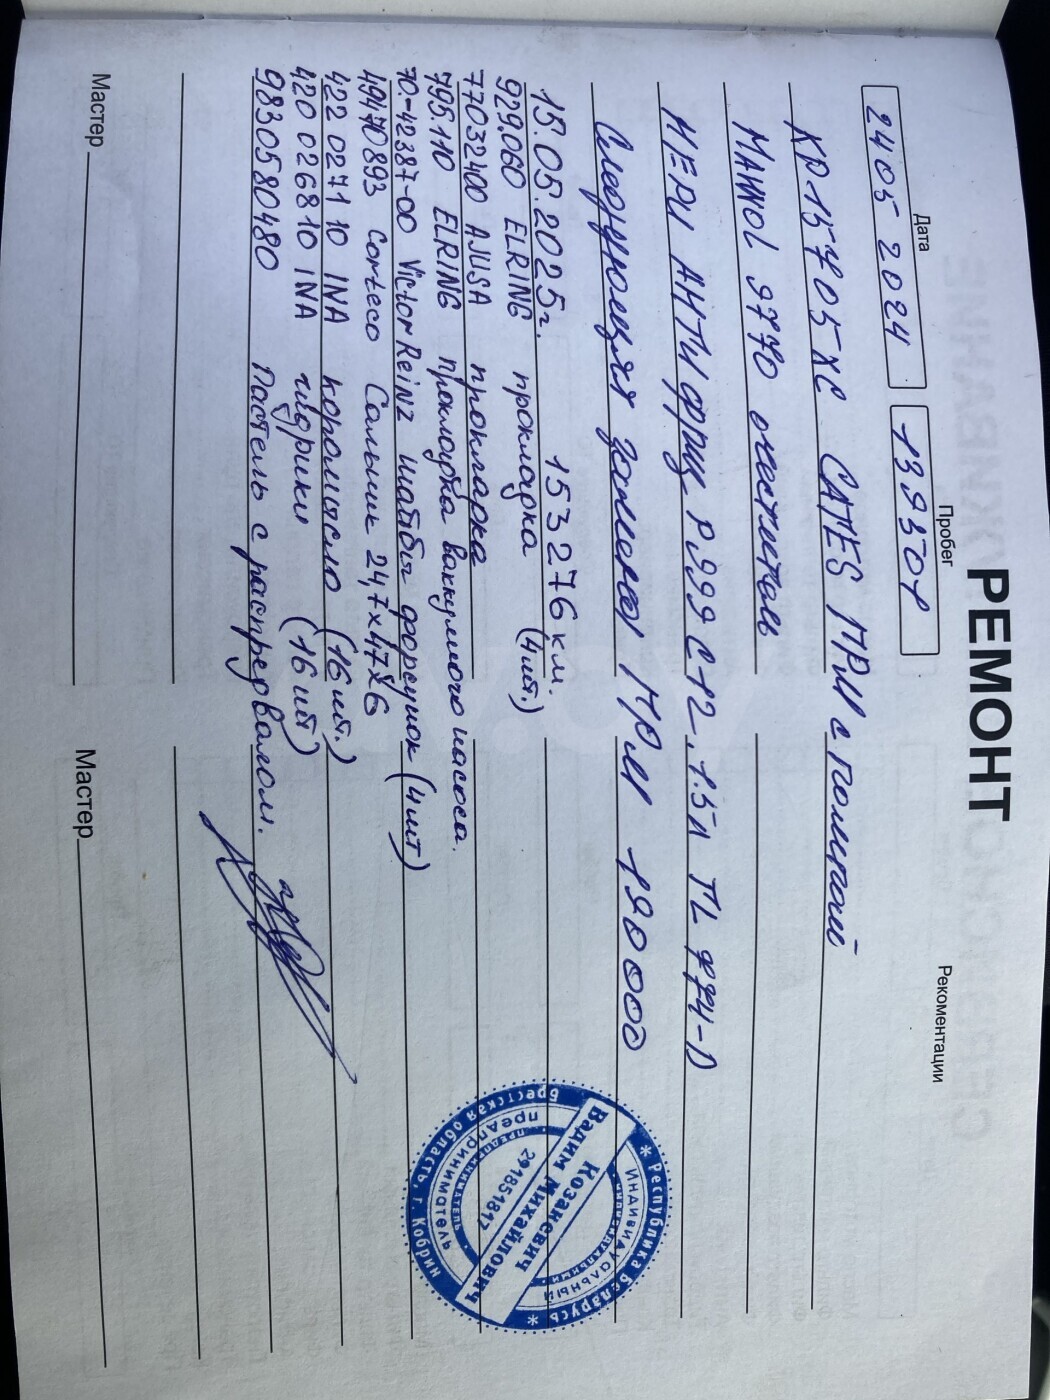 РЕМОНТ
Дата
Пробег
Рекоментации
24 05 2024
KP15705XS GATES ГРМ с помпой
MANNOL 9770 очиститель
HEPU АНТИФРИЗ P.999 G12. 1.5л TL 774-D
Следующая замена ГРМ 190000
15.05.2025г. 153276 км.
929.060 ELRING прокладка (4шт.)
77032400 AJUSA прокладка
795.110 ELRING прокладка вакумного насоса.
70-42387-00 Victor Reinz шайбы форсунок (4шт)
49470893 Corteco Сальник 24,7x47x6
422 0271 10 INA коромысло (16шт.)
420 0268 10 INA гидрики (16шт)
9830580480 Постель с распредвалом.
Мастер
Мастер
* Республика Беларусь *
Брестская область, г. Кобрин
Индивидуальный
предприниматель
Козакевич
Вадим Михайлович
291851817